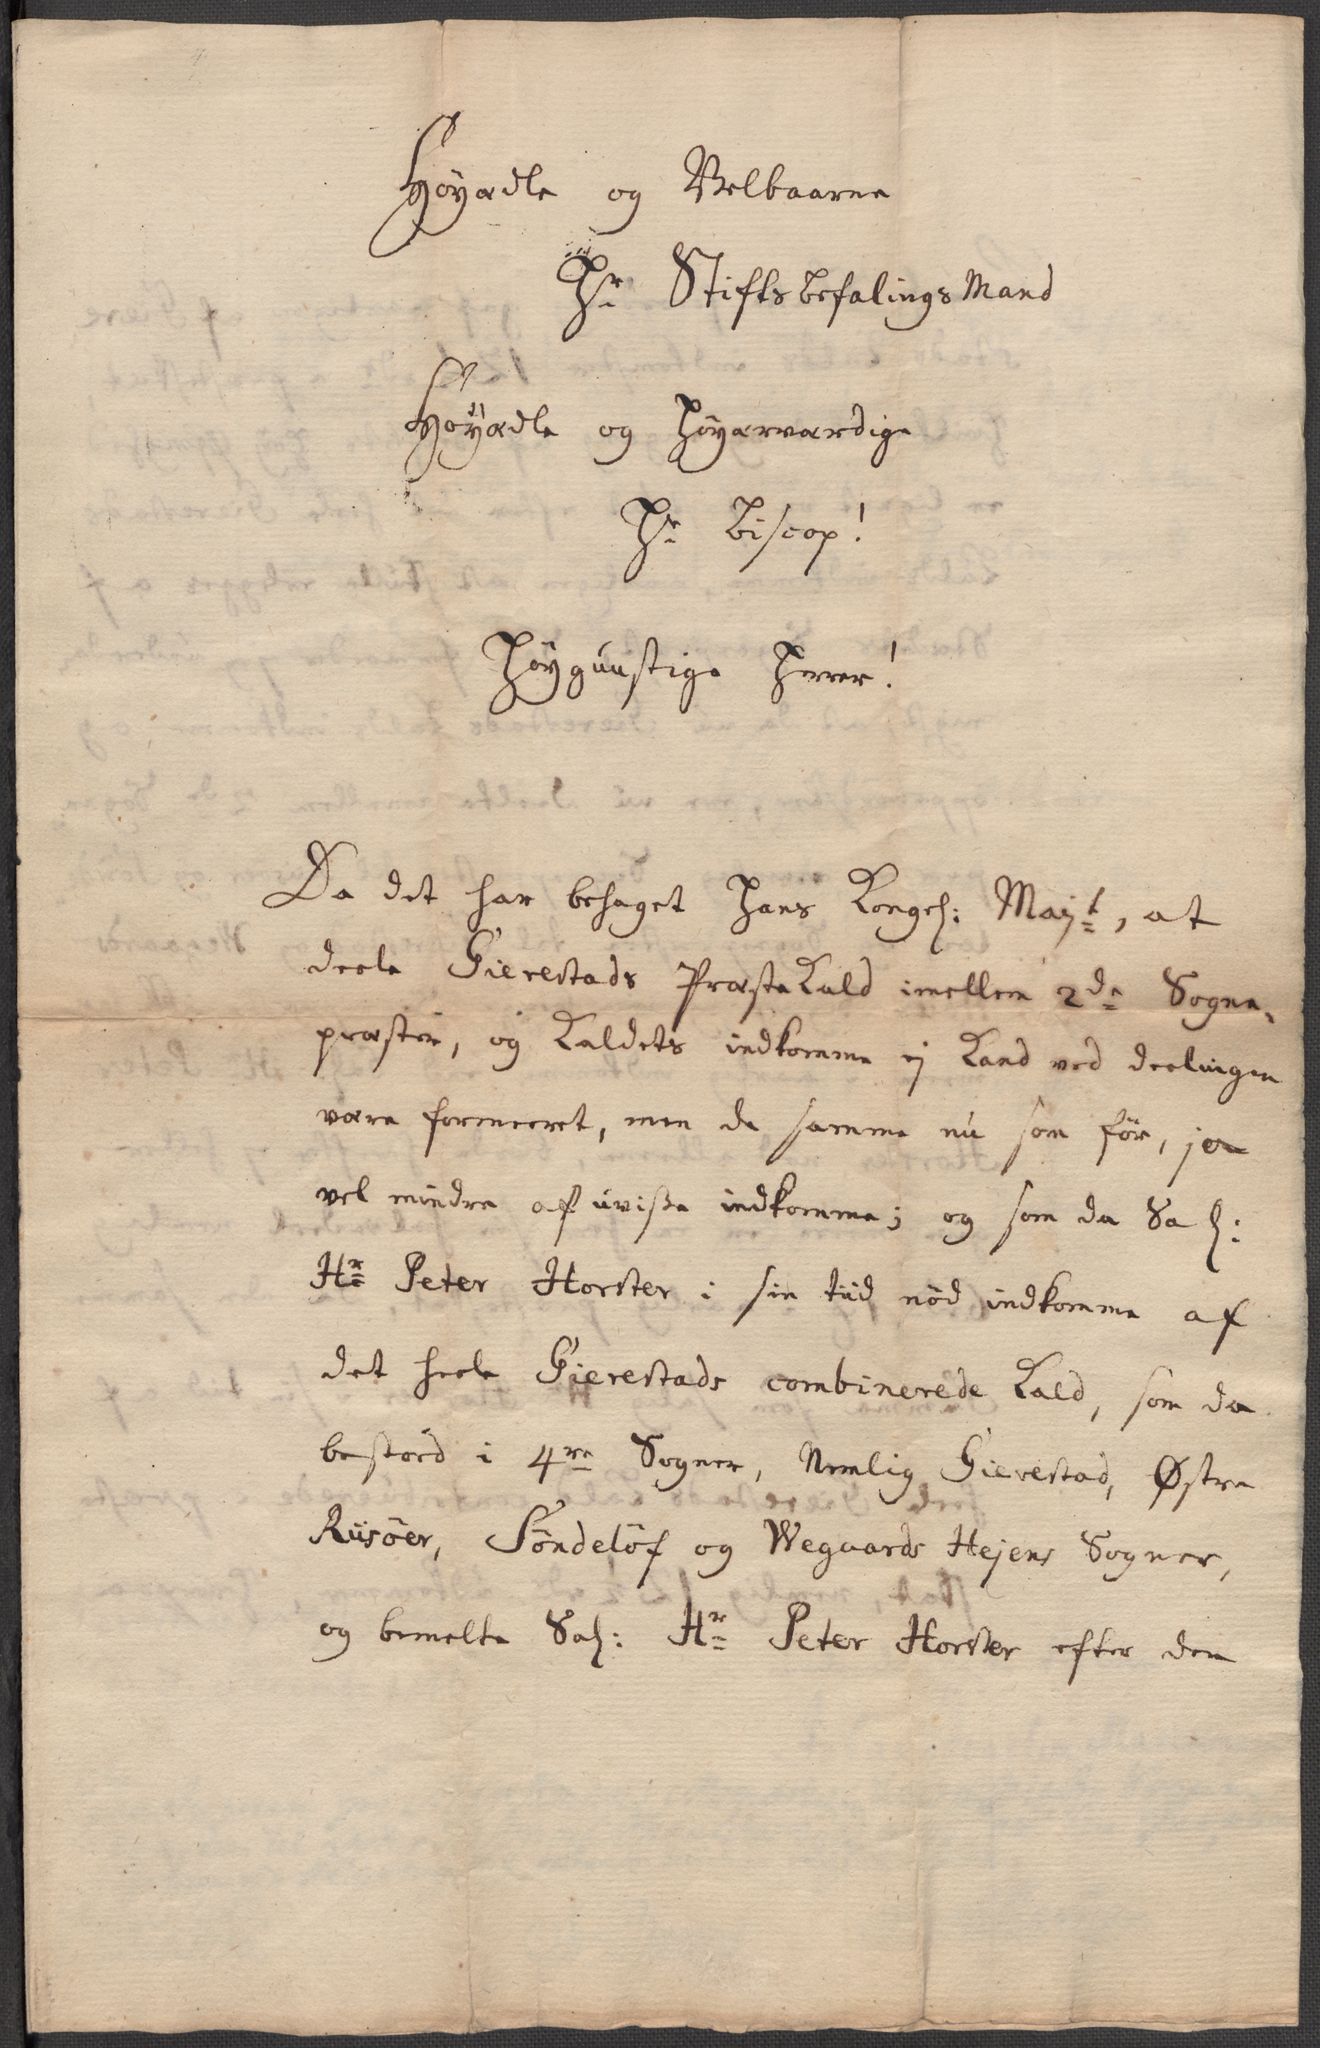 Høyædle og Velbaarne
Hr Stiftsbefalings Mand
Høyædle og Høyærværdige
Hr Biscop!
Høygunstige Herrer!
Da det har behaget Hans Kongel: Mayt, at
deele Gierestads PræsteKald imellem 2de Sogne-
præster, og Kaldets indkomme ej Kand ved deelingen
være formeeret, men de samme nu som för, ja
vel mindre af uvisse indkomme; og som da Sal:
Hr Peter Horster i sin tiid nød indkomme af
det heele Gierestads combinerede Kald, som da
bestoed i 4re Sogner, Nemlig Gierestad, Østre
Riisöer, Söndelöf og Wegaards Hejens Sogner,
og bemelte Sal: Hr Peter Horster efter den